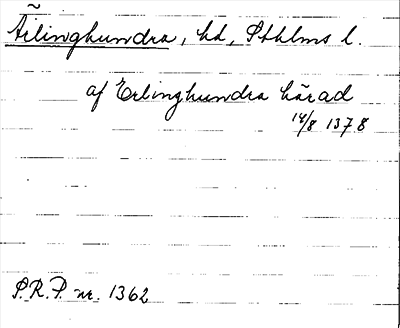 Ärlinghundra, hd, Sthlms l.
af Erlinghundra härad
14/8 1378
S.R.P. nr. 1362